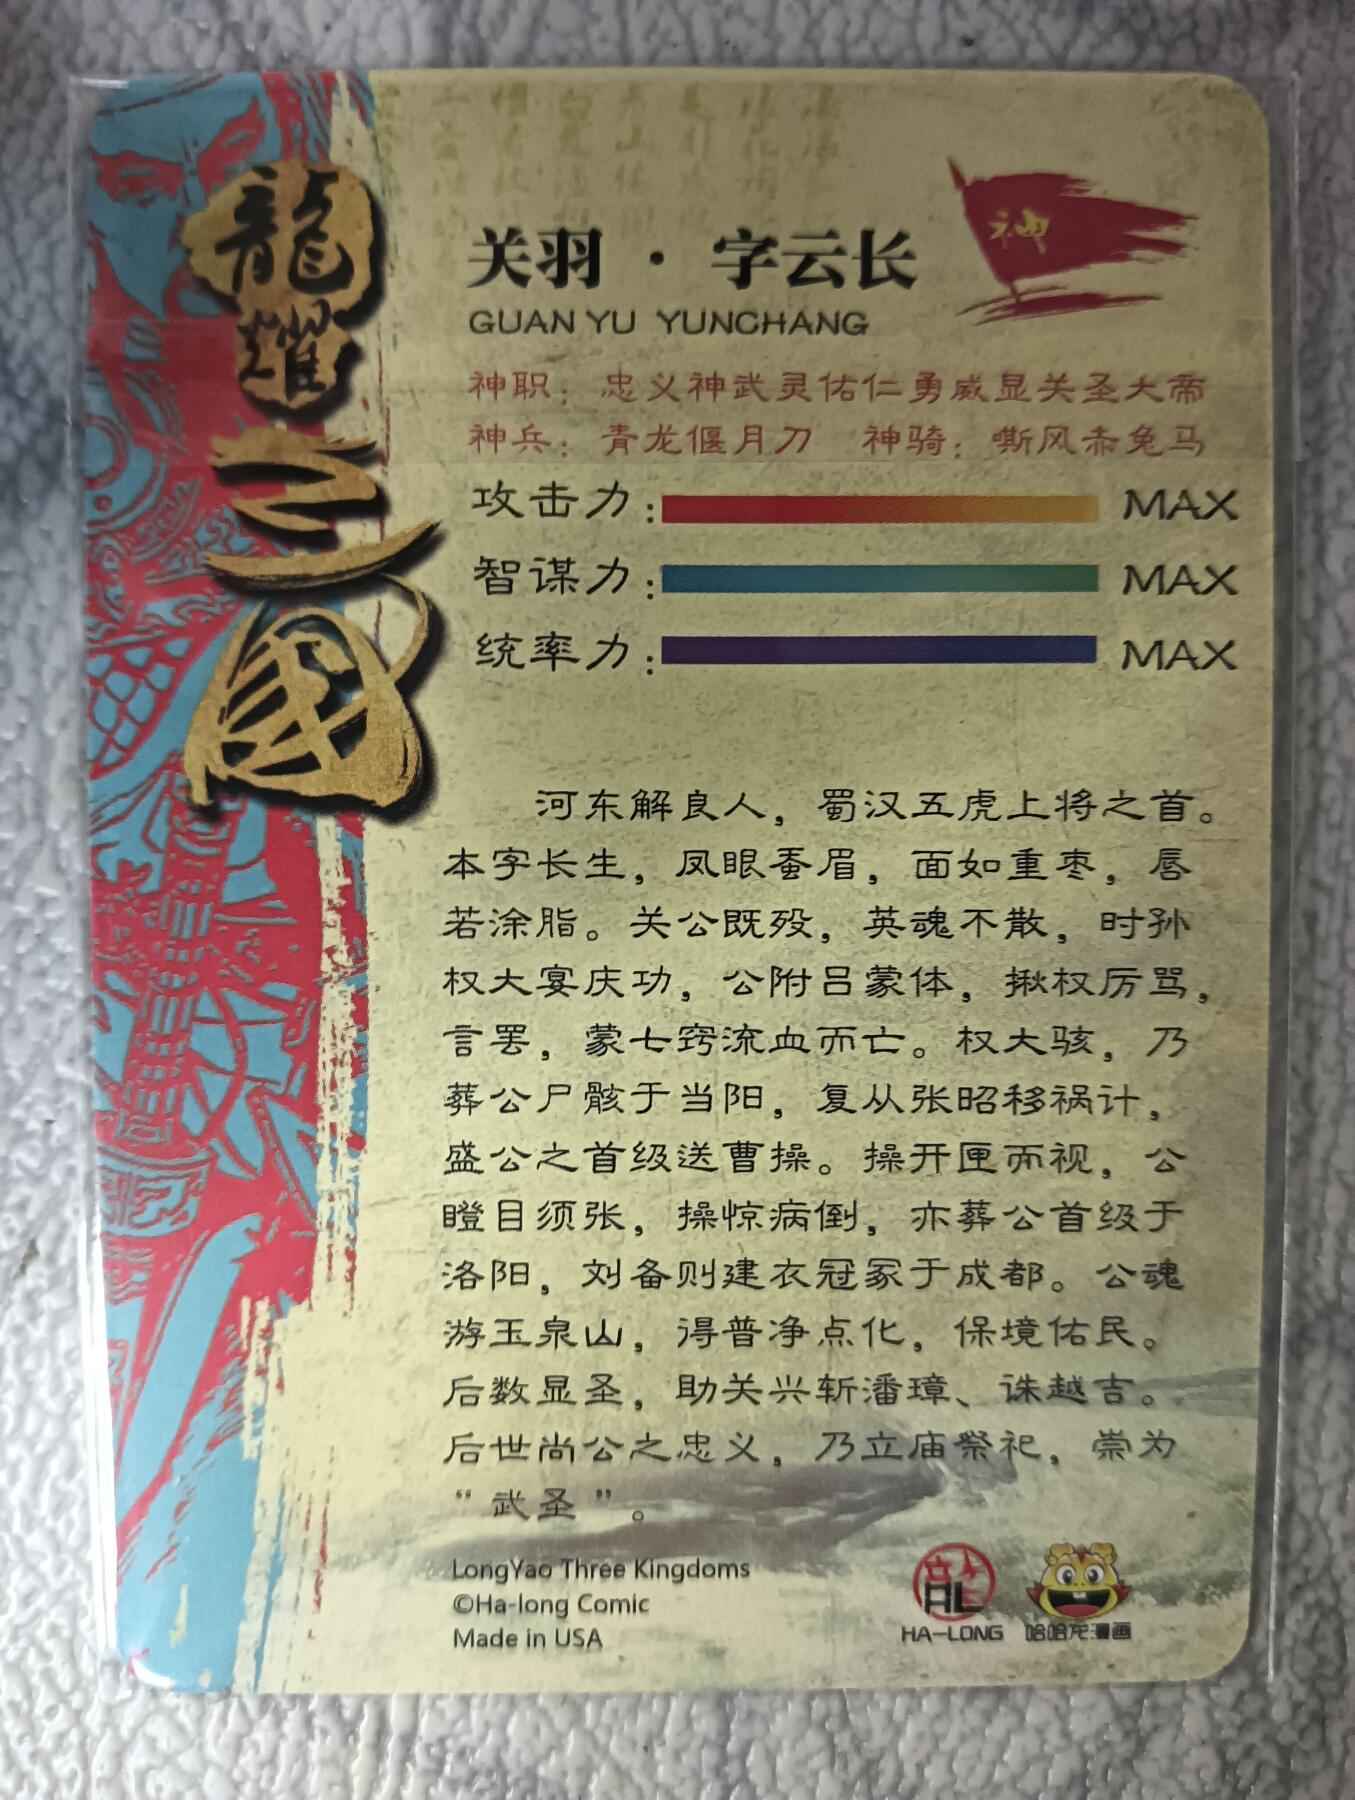 龍耀三國
关羽 · 字云长
神
GUAN YU YUNCHANG
神职：忠义神武灵佑仁勇威显关圣大帝
神兵：青龙偃月刀 神骑：嘶风赤兔马
攻击力: MAX
智谋力: MAX
统率力: MAX
河东解良人，蜀汉五虎上将之首。
本字长生，凤眼蚕眉，面如重枣，唇
若涂脂。关公既殁，英魂不散，时孙
权大宴庆功，公附吕蒙体，揪权厉骂，
言罢，蒙七窍流血而亡。权大骇，乃
葬公尸骸于当阳，复从张昭移祸计，
盛公之首级送曹操。操开匣而视，公
瞪目须张，操惊病倒，亦葬公首级于
洛阳，刘备则建衣冠冢于成都。公魂
游玉泉山，得普净点化，保境佑民。
后数显圣，助关兴斩潘璋、诛越吉。
后世尚公之忠义，乃立庙祭祀，崇为
“武圣”。
LongYao Three Kingdoms
©Ha-long Comic
Made in USA
HA-LONG 哈哈龙漫画